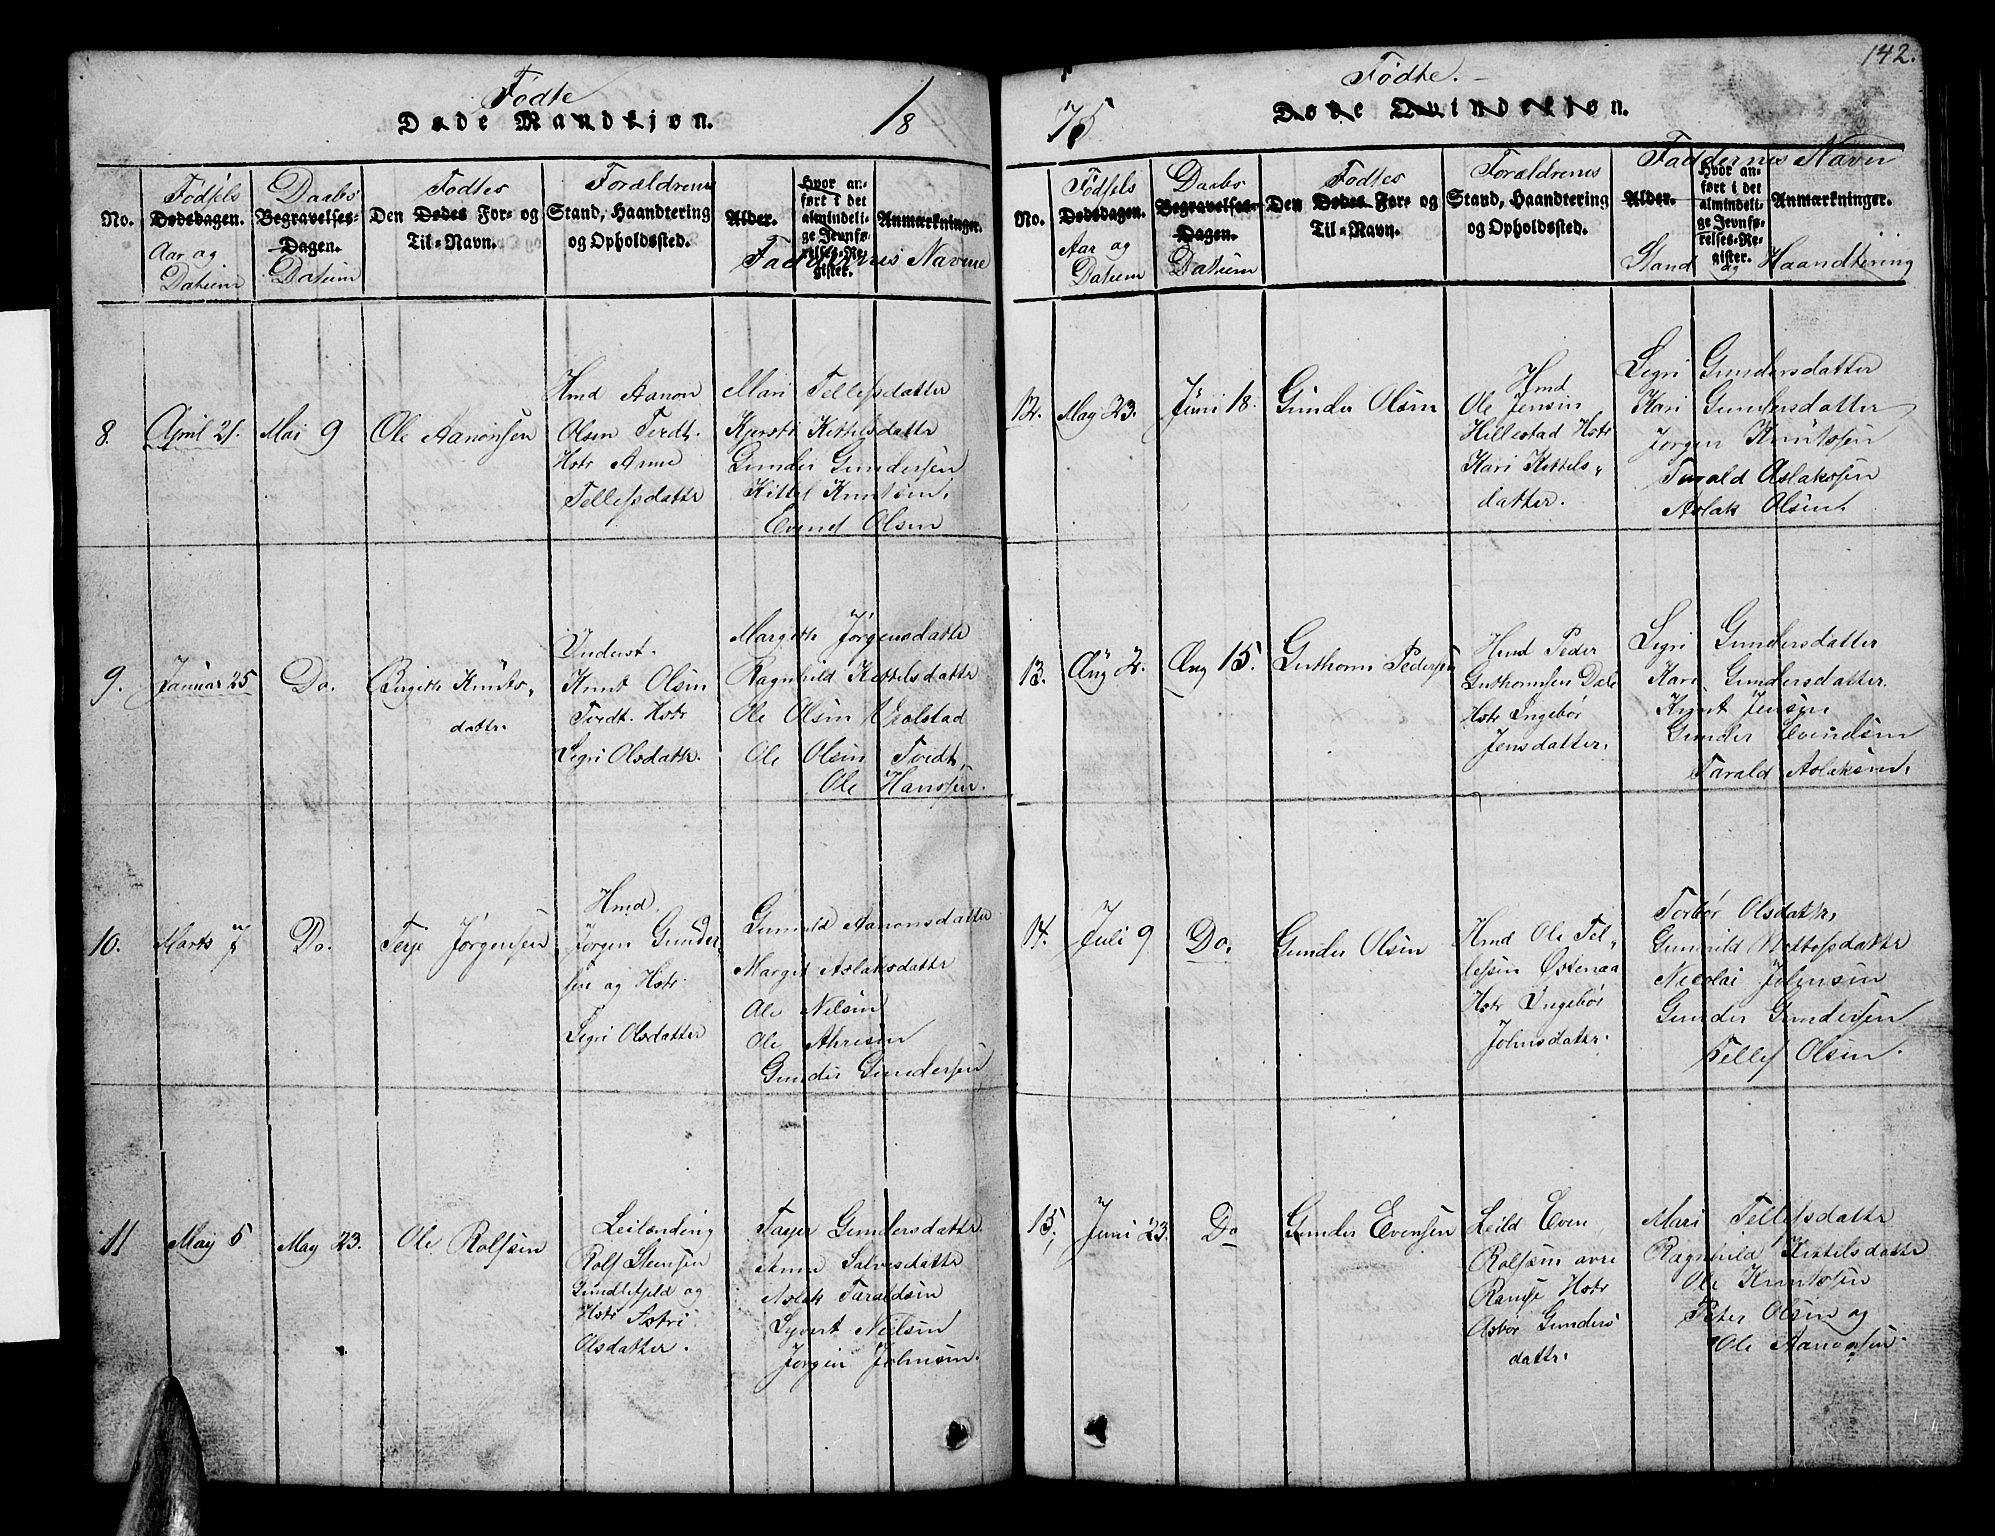 142.
Fødte
Døde Mandkjøn.
18
No.
Fødsels
Dødsdagen.
Aar og
Datum
Daabs
Begravelses-
Dagen.
Datum
Fødtes
Den Dødes For- og
Til-Navn.
Forældrenes
Stand, Haandtering
og Opholdssted.
Alder.
Hvor an-
ført i det
almindeli-
ge Jevnfø-
relses-Re-
gister.
Anmærkninger.
Faddernes Navne
8.
April 21.
Mai 9
Ole Aanonsen
Hmd Aanon
Olsen Tvedt.
Hstr Anne
Tellefsdatter
Mari Tellefsdatter
Kjersti Kittelsdattr
Gunder Gundersen
Kittel Knutsen.
Evend Olsen
9.
Januar 25
Do.
Birgithe Knuts-
dattr.
Inderst.
Knut Olsen
Tvedt. Hstr
Sigri Olsdattr.
Margith Jørgensdattr
Ragnhild Kittelsdattr
Ole Olsen Veolstad
Ole Olsen Tvedt,
Ole Hansen.
10.
Marts 7
Do.
Terje Jørgensen
Hmd.
Jørgen Gunder-
sen og Hstr.
Sigri Olsdatter
Gunnild Aanonsdatter
Margit Aslaksdattr
Ole Nilsen
Ole
Gunder Gundersen
11
May 5
May 23.
Ole Rolfsen
Leilænding
Rolf Steensen
og
Hstr Astri
Olsdatter.
Taeje Gundersdattr.
Anne Salvesdattr
Aslak Taraldsen
Syvert Nielsen
Jørgen Johnsen.
Fødte.
75
Døde Qvindekjøn.
No.
Fødsels
Dødsdagen.
Aar og
Datum
Daabs
Begravelses-
Dagen.
Datum
Fødtes
Den Dødes For- og
Til-Navn.
Forældrenes
Stand, Haandtering
og Opholdssted.
Faddernes Navn
Alder.
Hvor an-
ført i det
almindeli-
ge Jevnfø-
relses-Re-
gister.
Anmærkninger.
Stand og Haandtering
12.
May 23.
Juni 18.
Gunder Olsen
Hmd
Ole Jensen
Hillestad Hstr
Kari Kittels-
datter.
Sigri Gundersdatter
Kari Gundersdatter
Jørgen Knutsen
Tarald Aslaksen
Aslak Olsen.
13.
Aug 2.
Aug 15.
Guthorm Pedersen
Hmd Peder
Guthormsen Dale
Hstr Ingebør
Jensdatter.
Sigri Gundersdatter
Kari Gundersdatter.
Knut Jensen
Gunder Evendsen
Tarald Aslaksen.
14.
Juli 9
Do.
Gunder Olsen
Hmd Ole Tel-
lefsen Østenaa
Hstr Ingebør
Johnsdattr.
Torbør Olsdattr,
Gunnild Nottofsdattr
Nicolai Johnsen
Gunder Gundersen
Tellef Olsen.
15,
Juni 23.
Do
Gunder Evensen
Leild Even
Rolfsen øvre
Ramse Hstr
Asbør Gunders
dattr.
Mari Tellefsdattr
Ragnhild Kittelsdattr
Ole Knutsen
Peter Olsen og
Ole Aanonsen.